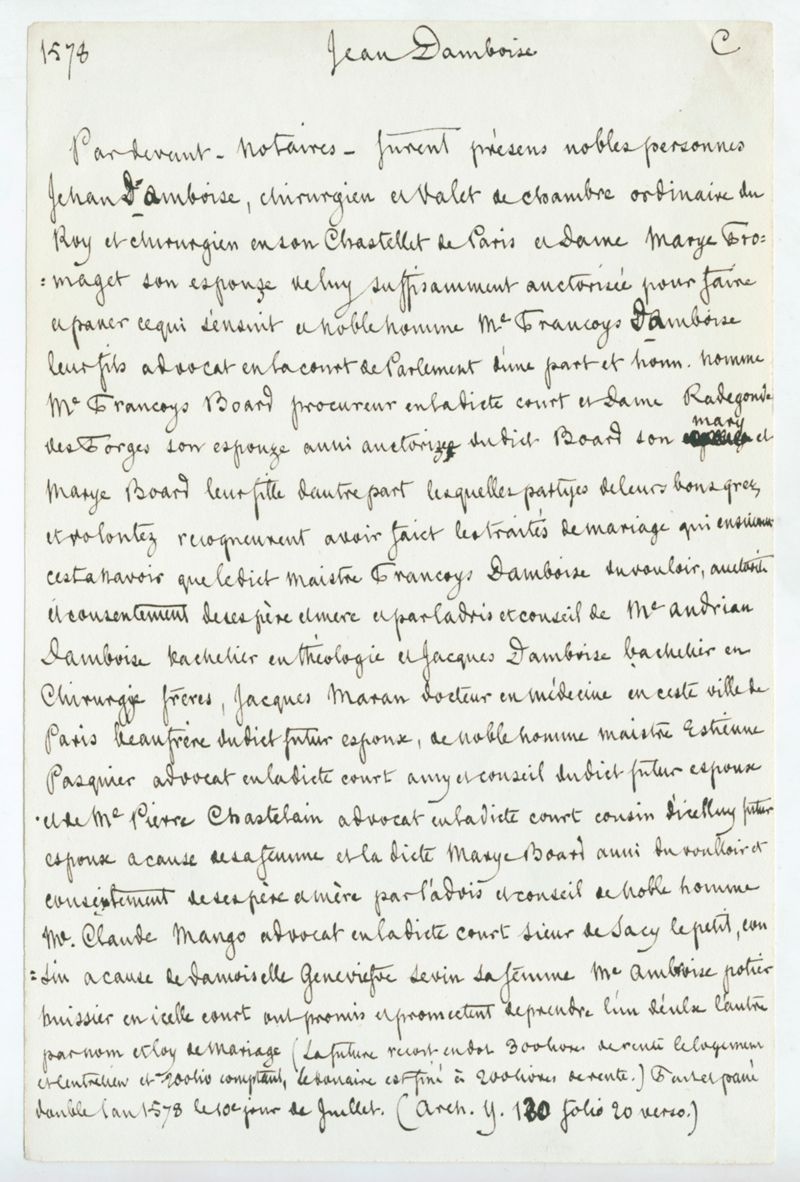 1578 Jean Damboise C
Pardevant - Notaires - furent présens nobles personnes
Jehan D'amboise, chirurgien et Valet de chambre ordinaire du
Roy et chirurgien en son Chastellet de Paris et Dame Marye Fro=
=maget son espouze de luy suffisamment auctorisée pour faire
et passer ce qui s'ensuit et noble homme Me Francoys Damboise
leur fils advocat en la court de Parlement d'une part et honn. homme
Me Francoys Board procureur en ladicte court et Dame Radegonde
des Forges son espouze aussi auctorizée dudict Board son mary et
Marye Board leur fille dautre part lesquelles partyes de leurs bons grez
et volontez recogneurent avoir faict les traités de mariage qui ensuivent
cest assavoir que ledict maistre Francoys Damboise du vouloir, auctorité
et consentement de ses père et mere et par ladvis et conseil de Me andrian
Damboise bachelier en théologie et Jacques Damboise bachelier en
Chirurgie frères, Jacques Maran docteur en médecine en ceste ville de
Paris beaufrère dudict futur espoux, de noble homme maistre Estienne
Pasquier advocat en ladicte court amy et conseil dudict futur espoux
et de Me Pierre Chastelain advocat en ladicte court cousin d'icelluy futur
espoux a cause de sa femme et la dicte Marye Board aussi du voulloir et
consentement de ses père et mère par l'advis et conseil de noble homme
Me. Claude Mango advocat en ladicte court Sieur de Sacy le petit, cou
=sin a cause de damoiselle Geneviefve Sevin sa femme Me Ambroise potier
huissier en icelle court ont promis et promectent de prendre l'un d'eulx l'autre
par nom et loy de Mariage (La future reçoit en dot 300 livres de rente le logement
et l'entretien et 200 liv comptant, le douaire est fixé à 200 livres de rente.) Fait et passé
double l'an 1578 le 10e jour de Juillet. (Arch. Y. 120 folio 20 verso.)